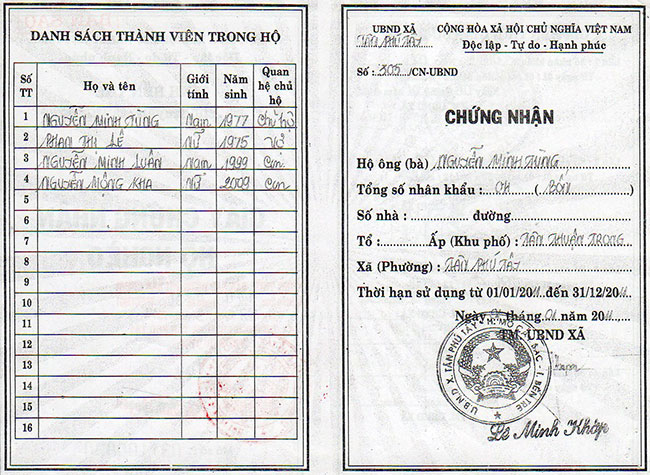 DANH SÁCH THÀNH VIÊN TRONG HỘ
Số TT Họ và tên Giới tính Năm sinh Quan hệ chủ hộ
1 NGUYỄN MINH TÙNG Nam 1977 Chủ hộ
2 PHAN THỊ LỆ Nữ 1975 Vợ
3 NGUYỄN MINH LUÂN Nam 1999 Con
4 NGUYỄN MỘNG KHA Nữ 2009 Con
5
6
7
8
9
10
11
12
13
14
15
16
UBND XÃ CỘNG HÒA XÃ HỘI CHỦ NGHĨA VIỆT NAM
TÂN PHÚ TÂY Độc lập - Tự do - Hạnh phúc
Số : 305 /CN-UBND
CHỨNG NHẬN
Hộ ông (bà) : NGUYỄN MINH TÙNG
Tổng số nhân khẩu : 04 ( BỐN )
Số nhà : đường
Tổ : Ấp (Khu phố) : TÂN THUẬN TRONG
Xã (Phường) : TÂN PHÚ TÂY
Thời hạn sử dụng từ 01/01/2011 đến 31/12/2011
Ngày 01 tháng 01 năm 2011
TM. UBND XÃ
U.B.N.D X. TÂN PHÚ TÂY H. MỎ CÀY BẮC - T. BẾN TRE
Lê Minh Khớp